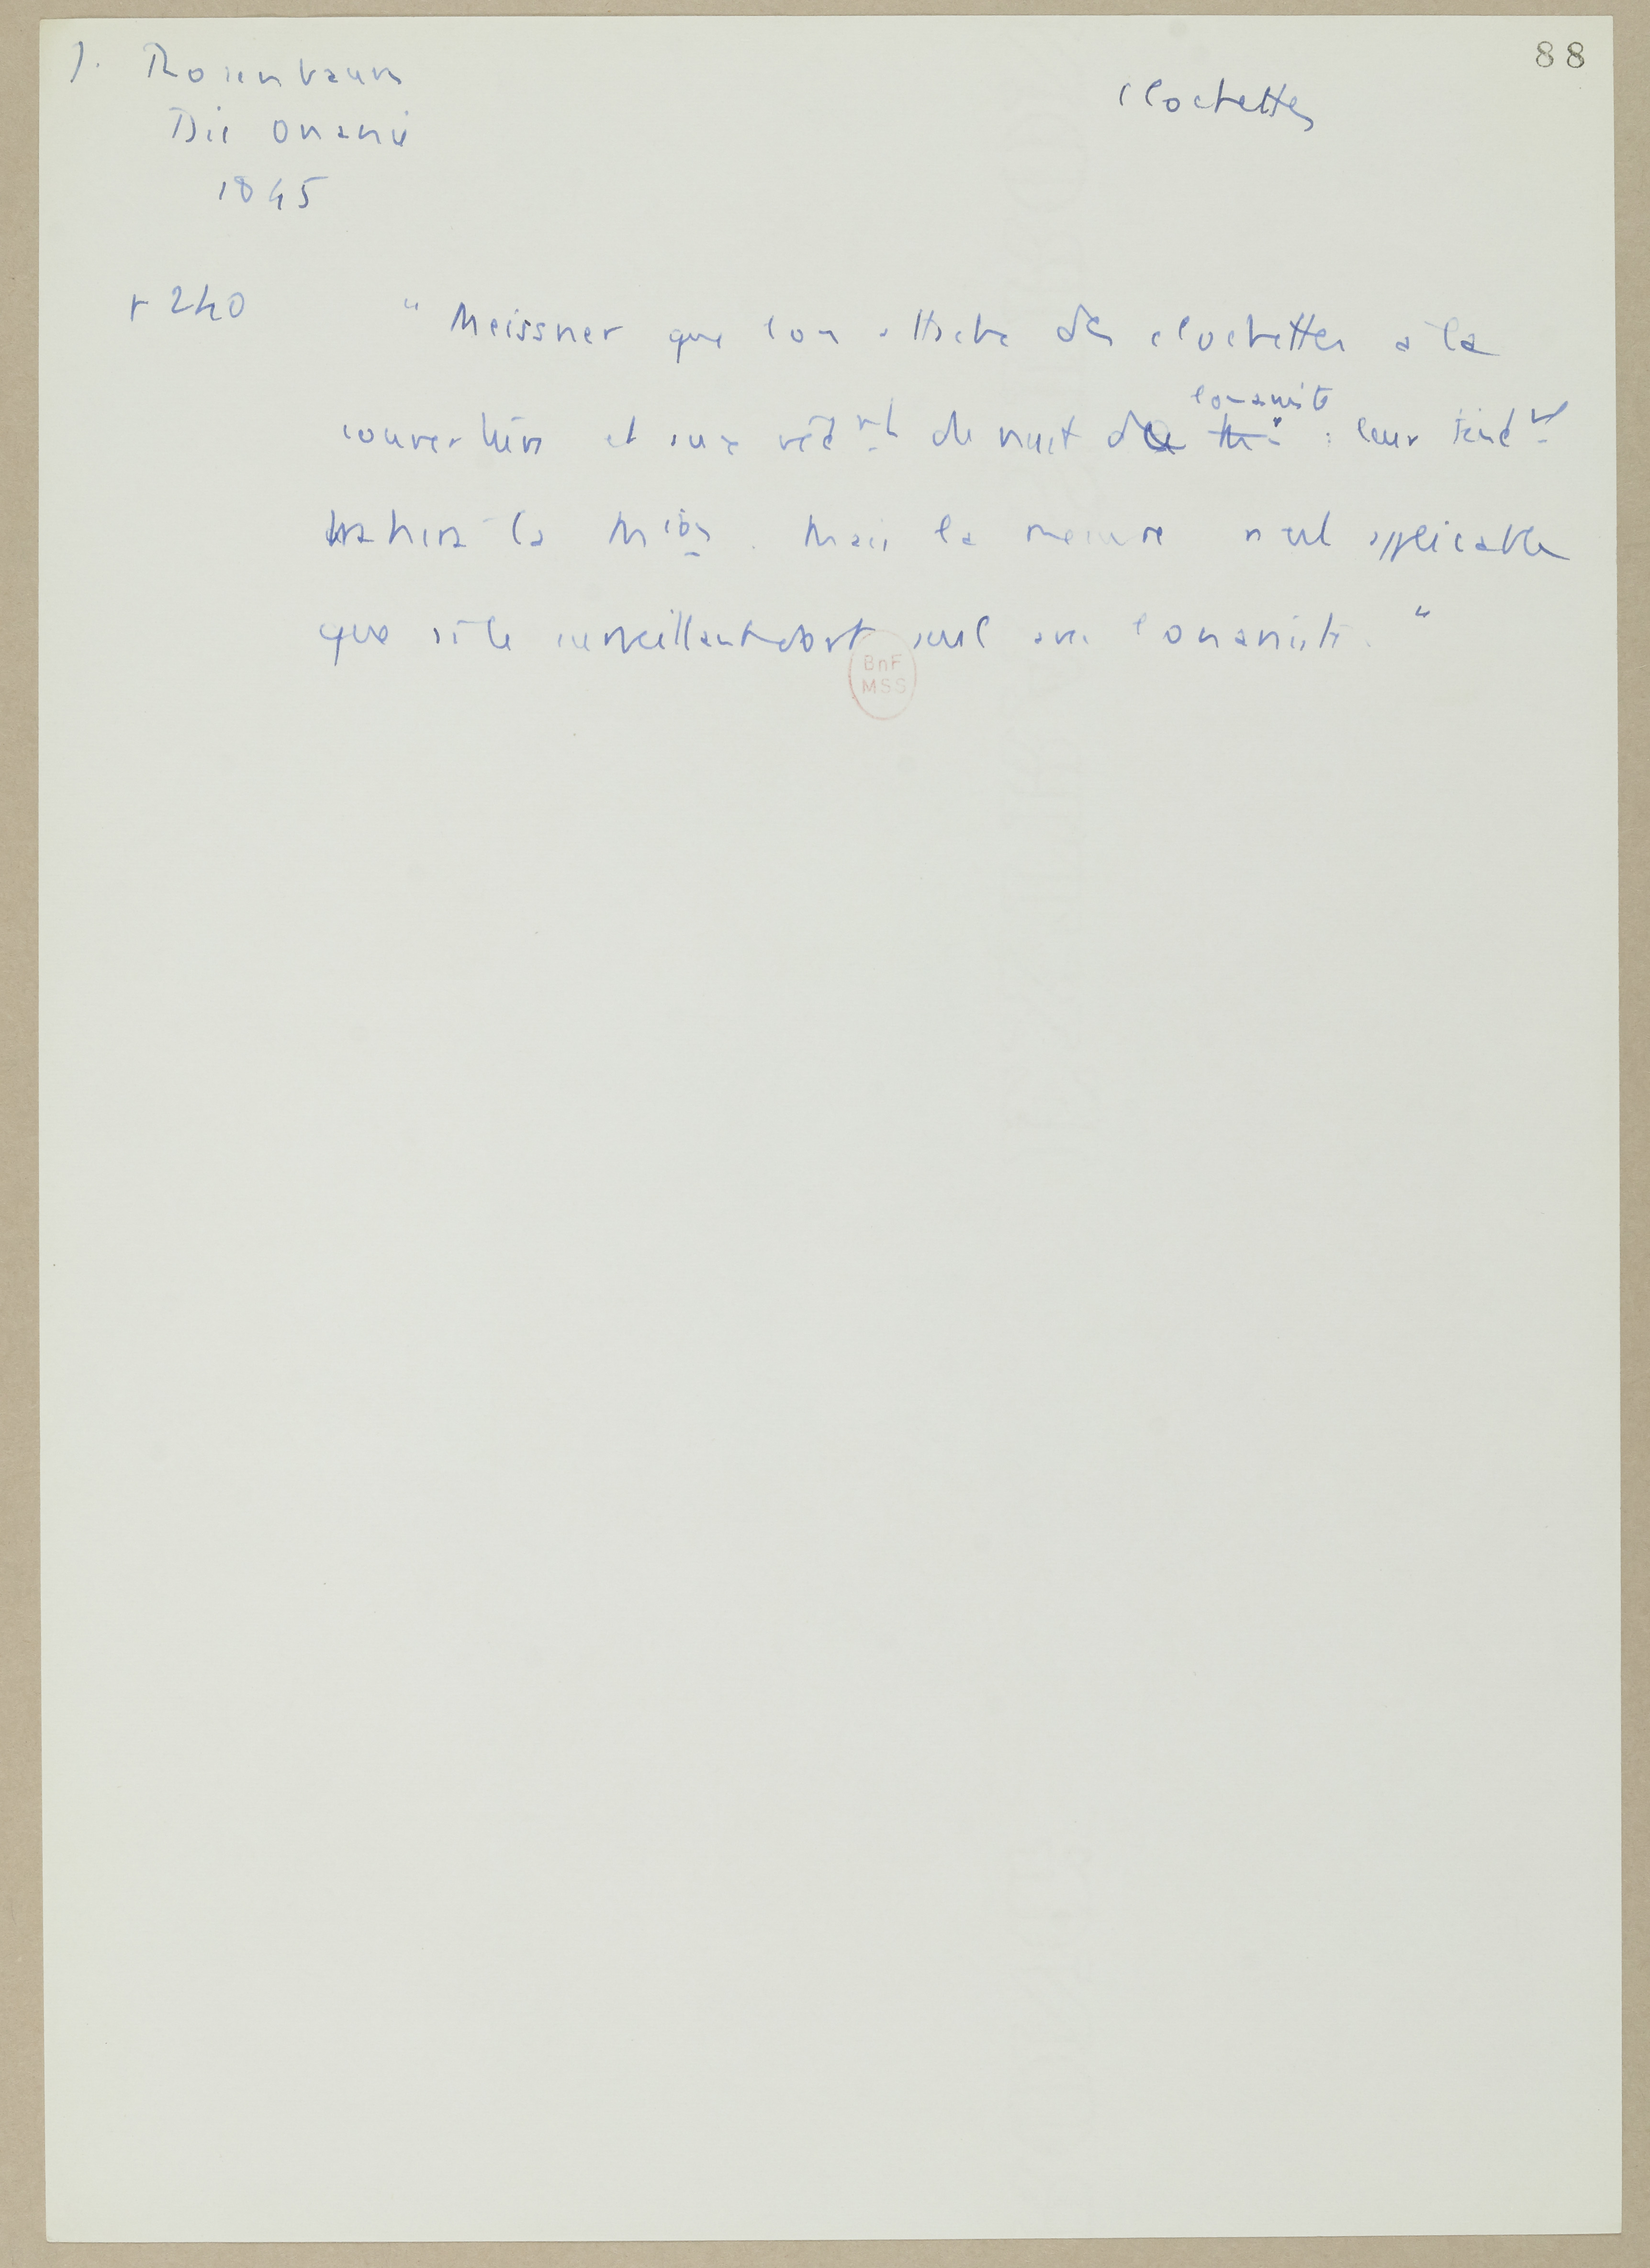 88
J. Rosenbaum
Die Onanie
1845
clochettes
p 240 "Meissner que l'on attache des clochettes à la
l'onaniste
couverture et aux vêt nt de nuit de : leur tint nt
trahira la mion. Mais la mesure n'est applicable
que si le surveillant dort seul avec l'onaniste."
BnF
MSS